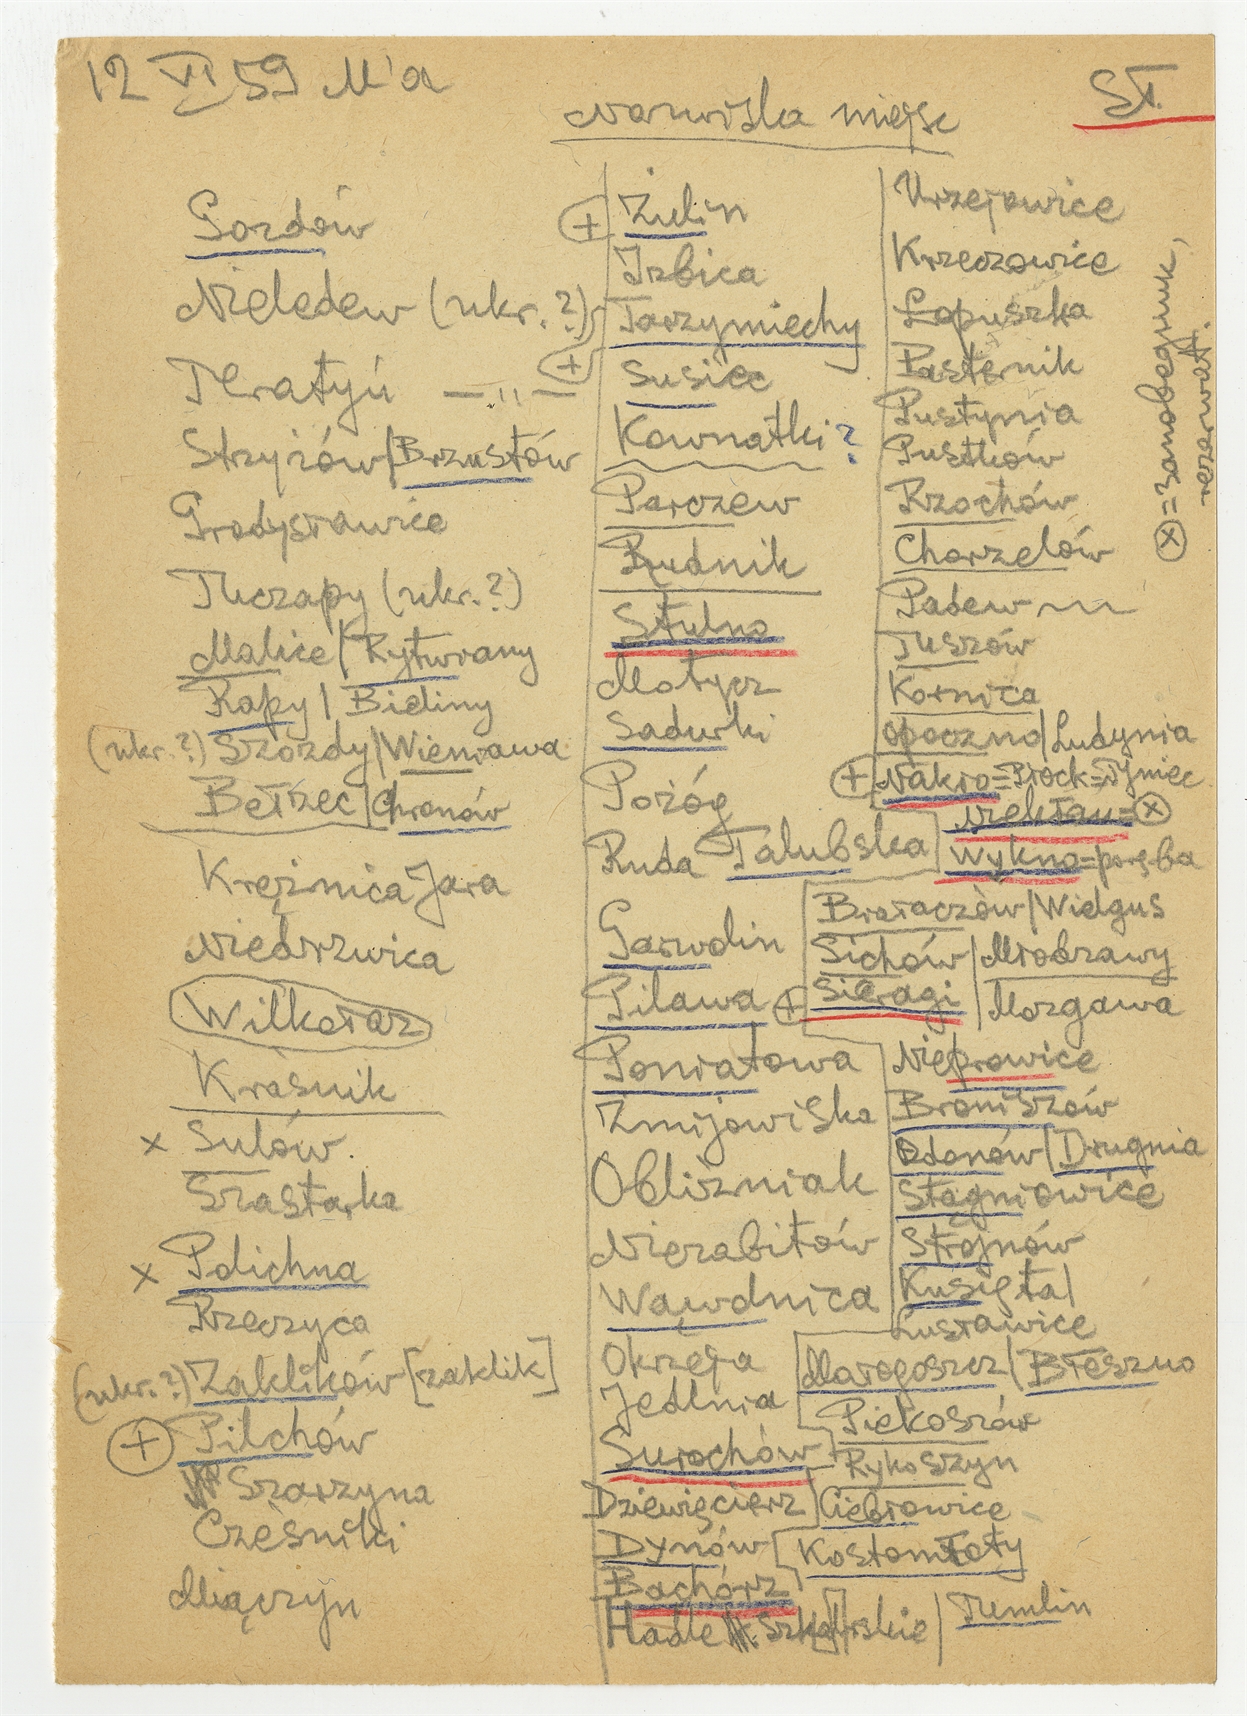 12 VI 59 M'a
Nazwiska miejsc
St.
Gozdów
Nieledew (ukr.?)
Teratyń —„—
Strzyżów/Brzustów
Grodysławice
Tuczapy (ukr.?)
Malice/Rytwiany
Rapy/Bieliny
(ukr.?) Szozdy/Wieniawa
Bełżec/Chronów
Krężnica Jara
Niedrzwica
Wilkołaz
Kraśnik
x Sulów.
Szastarka
x Polichna
Rzeczyca
(ukr.?) Zaklików [zaklik]
+ Pilchów
Szarzyna
Cześniki
Miączyn
+ Żulin
Izbica
Tarzymiechy
+ Susiec
Kownatki?
Parczew
Rudnik
Stulno
Motycz
Sadurki
Pożóg
Ruda Talubska
Garwolin
Pilawa
Poniatowa
Żmijowiska
Oblizniak
Niezabitów
Wąwolnica
Okrzeja
Jedlnia
Surochów
Dziewięcierz
Dynów
Bachórz
Hadle Szklarskie
Urzejowice
Krzeczowice
Łopuszka
Pasternik
Pustynia
Pustków
Rzochów
Chorzelów
Padew
Tuszów
Kornica
Opoczno/Ludynia
+ Nakło=Płock=Tyniec
Niekłań=x
Wykno=poręba
Brataczów/Wielgus
Sichów/Młodzawy
+ Sieragi/Mozgawa
Nieprowice
Broniszów
Odonów/Drugnia
Stągniowice
Strojnów
Kusięta/
Lusławice
Małogoszcz/Błeszno
Piekoszów
Rykoszyn
Ciebłowice
Kostomłoty
Tumlin
x = samobiegunk,
rezerwat.